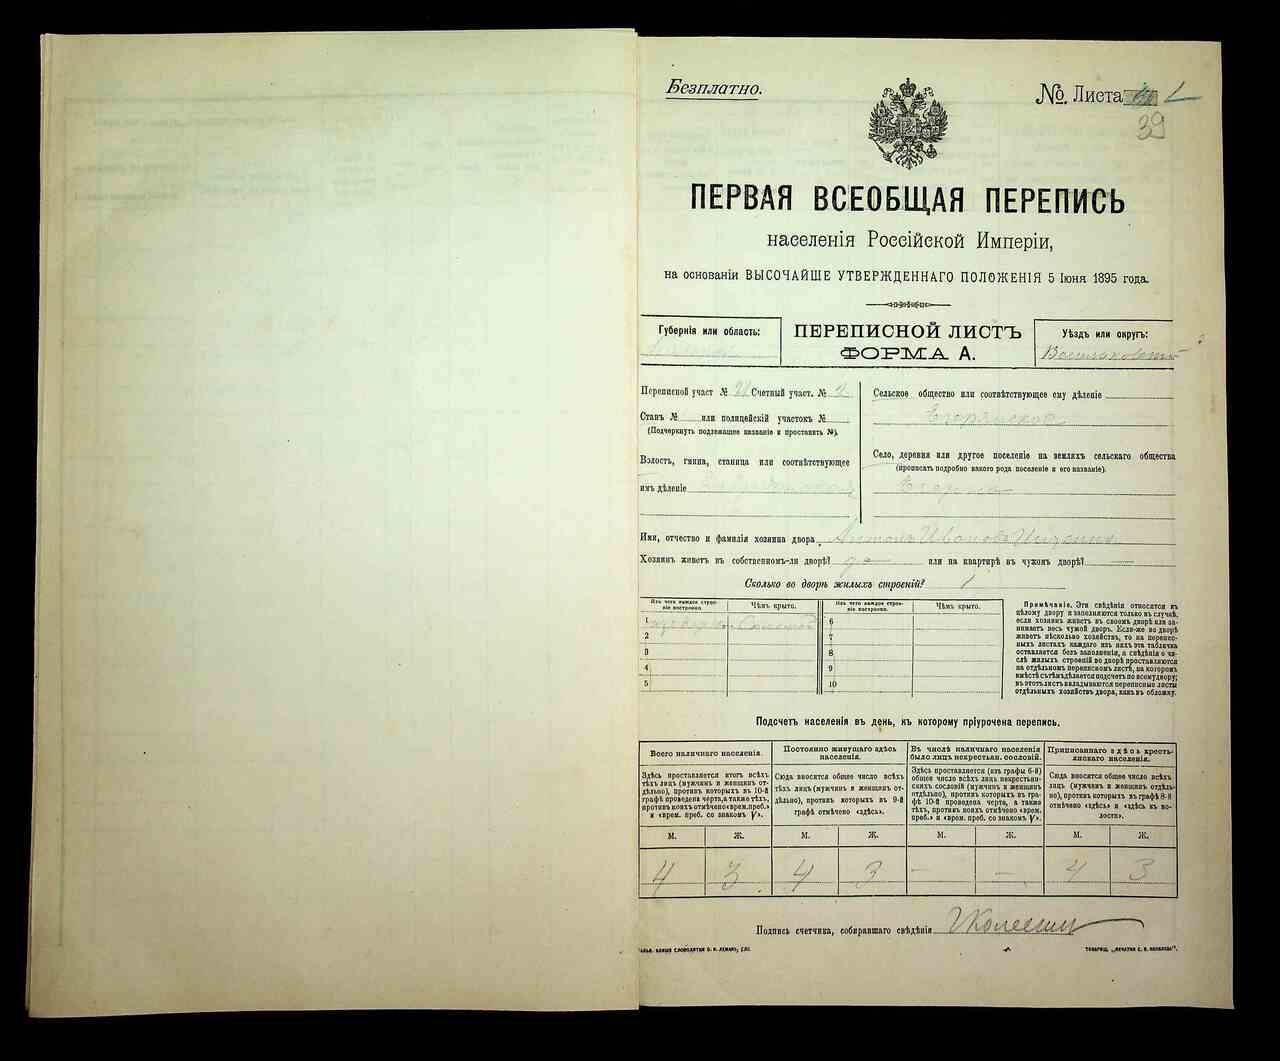 Безплатно.
№. Листа
39
ПЕРВАЯ ВСЕОБЩАЯ ПЕРЕПИСЬ
населенія Россійской Имперіи,
на основаніи ВЫСОЧАЙШЕ УТВЕРЖДЕННАГО ПОЛОЖЕНІЯ 5 Іюня 1895 года.
Губернія или область:
ПЕРЕПИСНОЙ ЛИСТЪ
ФОРМА А.
Уѣздъ или округъ:
Васильковскій
Переписной участ № 21 Счетный участ. № 2
Станъ № или полицейскій участокъ №
(Подчеркнуть подлежащее названіе и проставить №).
Волость, гмина, станица или соотвѣтствующее
имъ дѣленіе
Сельское общество или соотвѣтствующее ему дѣленіе
Село, деревня или другое поселеніе на земляхъ сельскаго общества
(прописать подробно какого рода поселеніе и его названіе).
Имя, отчество и фамилія хозяина двора Антонъ Ивановъ Ищенко
Хозяинъ живетъ въ собственномъ-ли дворѣ? да или на квартирѣ въ чужомъ дворѣ? —
Сколько во дворѣ жилыхъ строеній? 1
Изъ чего каждое строеніе построено.
Чѣмъ крыто.
Изъ чего каждое строеніе построено.
Чѣмъ крыто.
1 Соломой 6
2 7
3 8
4 9
5 10
Примѣчаніе. Эти свѣдѣнія относятся къ
цѣлому двору и заполняются только въ случаѣ,
если хозяинъ живетъ въ своемъ дворѣ или за-
нимаетъ весь чужой дворъ. Если-же во дворѣ
живетъ нѣсколько хозяйствъ, то на перепис-
ныхъ листахъ каждаго изъ нихъ эта табличка
оставляется безъ заполненія, а свѣдѣнія о чи-
слѣ жилыхъ строеній во дворѣ проставляются
на отдѣльномъ переписномъ листѣ, на которомъ
вмѣстѣ съ тѣмъ дѣлается подсчетъ по всему двору;
въ этотъ листъ вкладываются переписные листы
отдѣльныхъ хозяйствъ двора, какъ въ обложку.
Подсчетъ населенія въ день, къ которому пріурочена перепись.
Всего наличнаго населенія.
Здѣсь проставляется итогъ всѣхъ
тѣхъ лицъ (мужчинъ и женщинъ от-
дѣльно), противъ которыхъ въ 10-й
графѣ проведена черта, а также тѣхъ,
противъ коихъ отмѣчено «врем. преб.»
и «врем. преб. со знакомъ V».
Постоянно живущаго здѣсь
населенія.
Сюда вносится общее число всѣхъ
тѣхъ лицъ (мужчинъ и женщинъ от-
дѣльно), противъ которыхъ въ 9-й
графѣ отмѣчено «здѣсь».
Въ числѣ наличнаго населенія
было лицъ некрестьян. сословій.
Здѣсь проставляется (изъ графы 6-й)
общее число всѣхъ лицъ некрестьян-
скихъ сословій (мужчинъ и женщинъ
отдѣльно), противъ которыхъ въ гра-
фѣ 10-й проведена черта, а также
тѣхъ, противъ коихъ отмѣчено «врем.
преб.» и «врем. преб. со знакомъ V».
Приписаннаго здѣсь кресть-
янскаго населенія.
Сюда вносится общее число всѣхъ
лицъ (мужчинъ и женщинъ отдѣль-
но), противъ которыхъ въ графѣ 8-й
отмѣчено «здѣсь» и «здѣсь въ во-
лости».
М. Ж. М. Ж. М. Ж. М. Ж.
4 3 4 3 — — 4 3
Подпись счетчика, собиравшаго свѣдѣнія
ТОВАРИЩ. „ПЕЧАТНЯ С. П. ЯКОВЛЕВА".